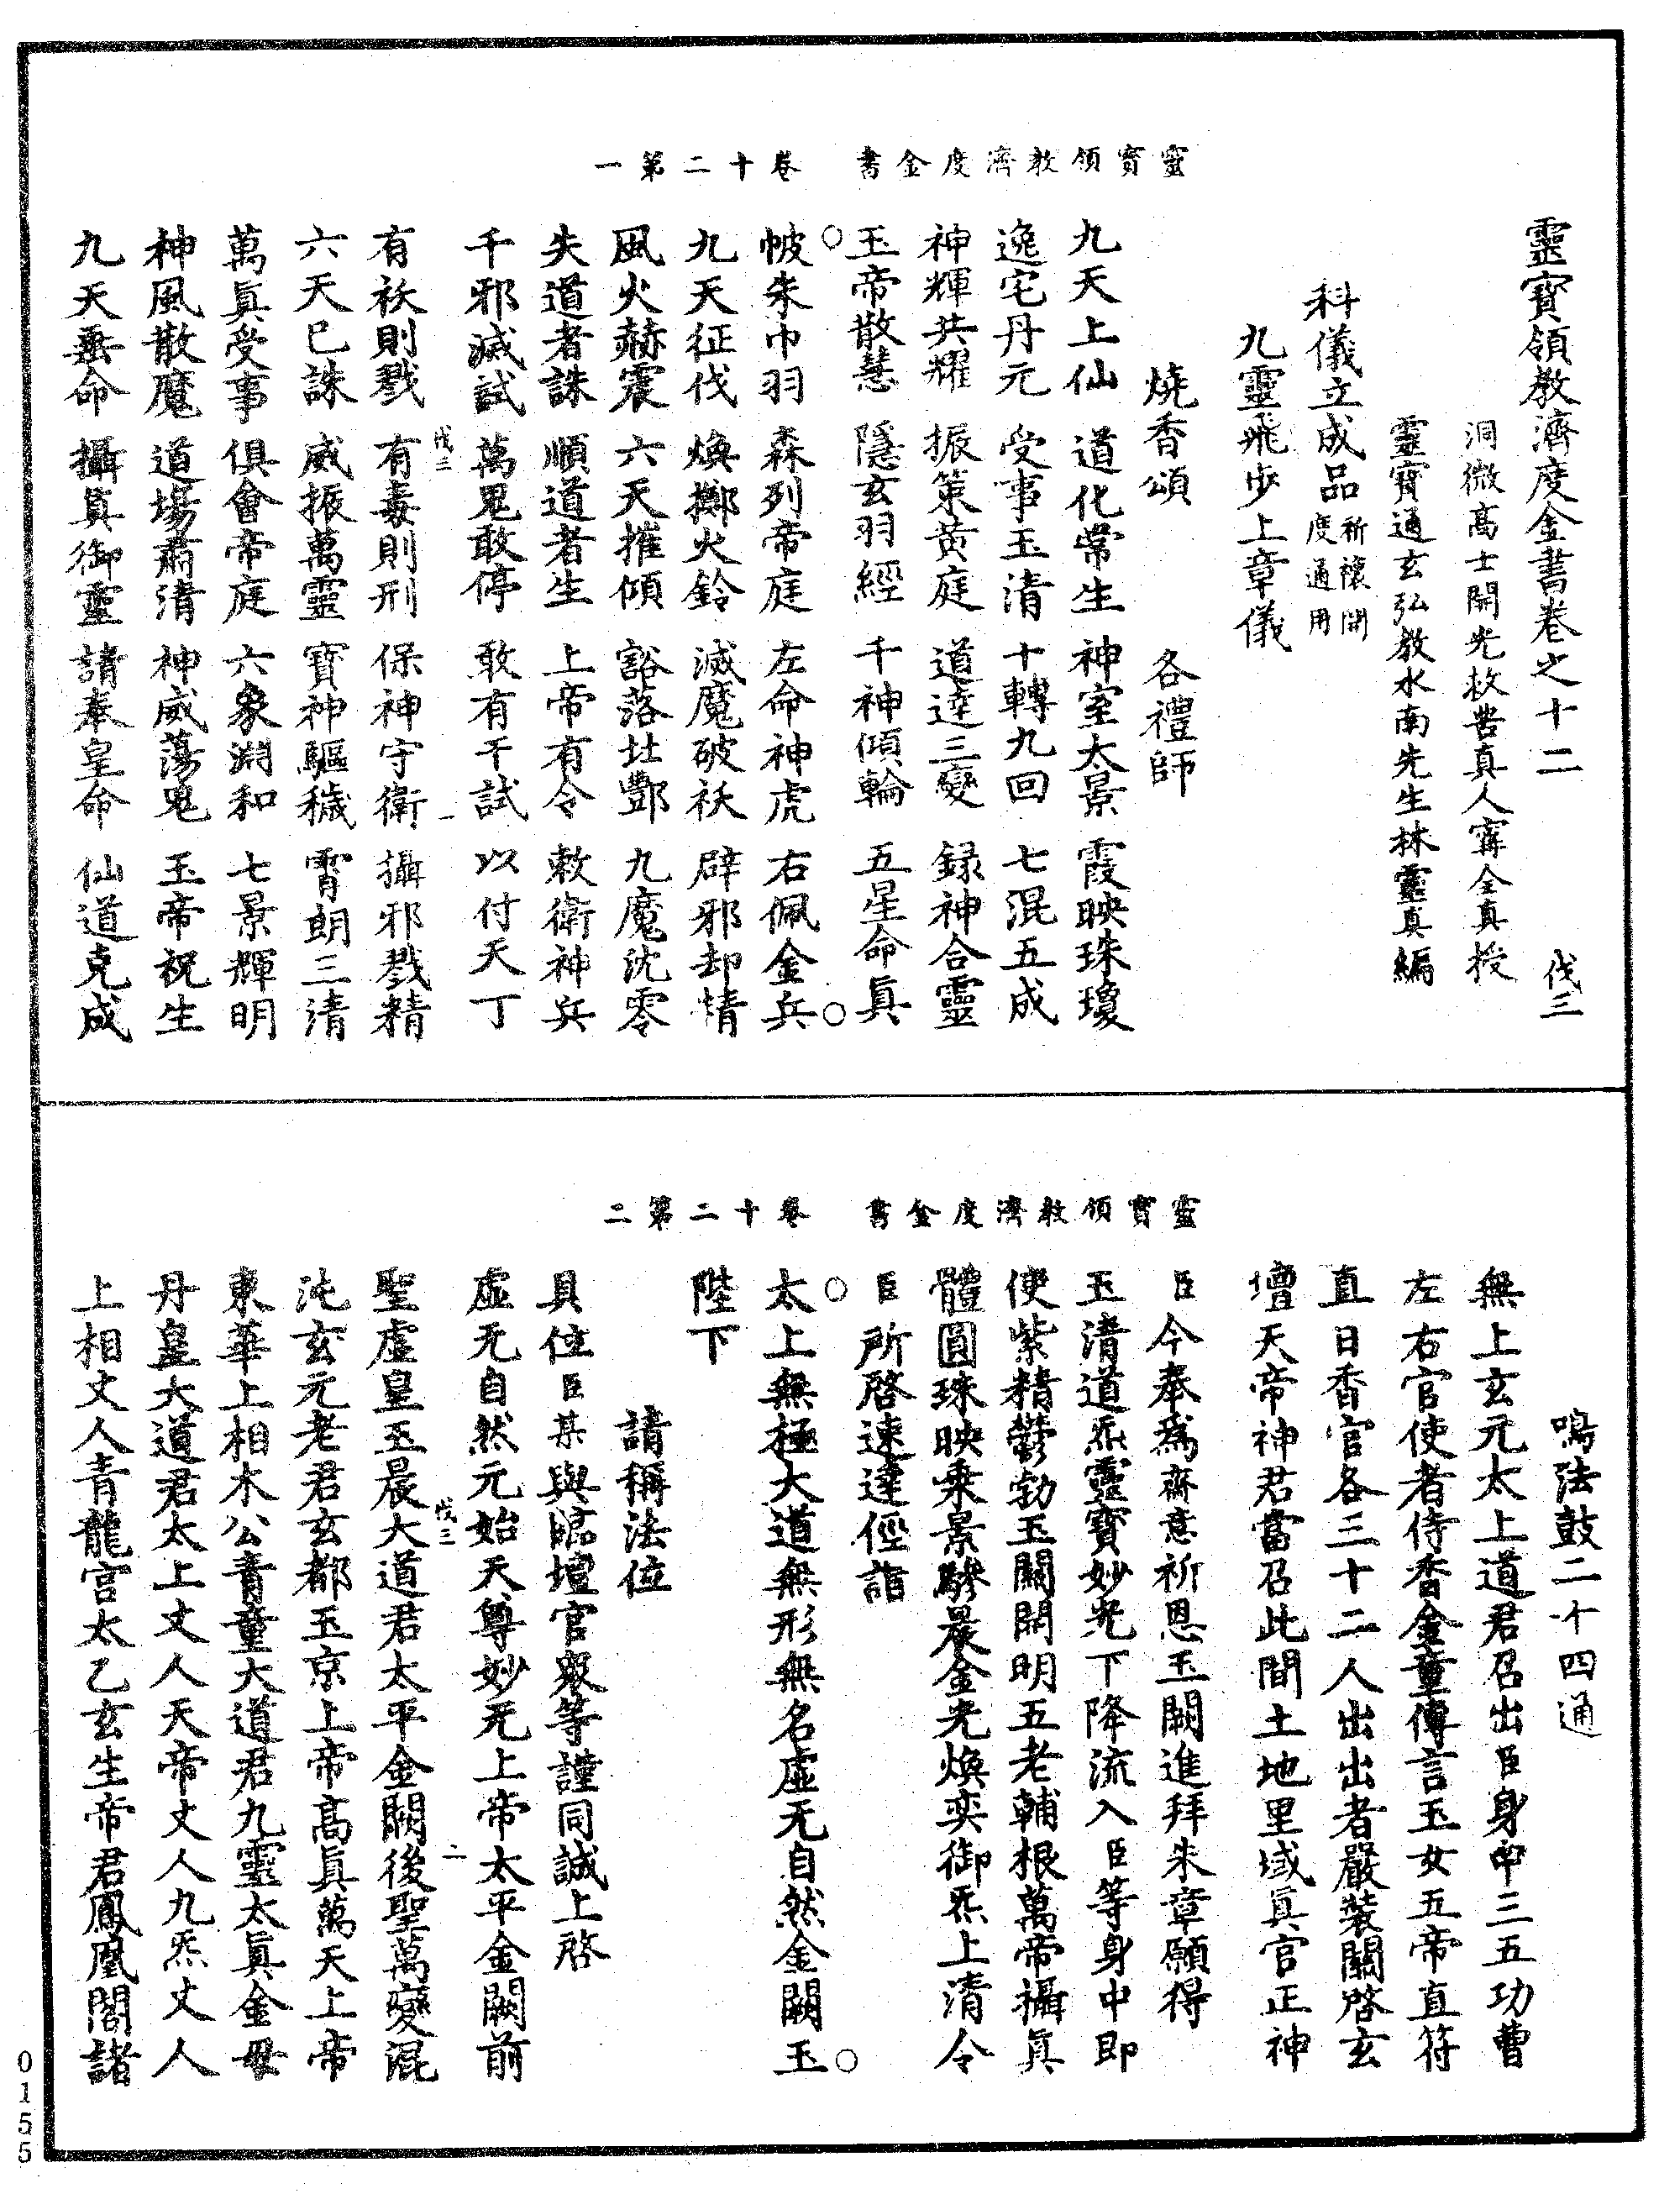 靈寶領教濟度金書 卷十二第一
靈寶領教濟度金書卷之十二 伐三
洞微高士開光救苦真人寗全真授
靈寶通玄弘教水南先生林靈真編
科儀立成品祈禳開度通用
九靈飛步上章儀
燒香頌 各禮師
九天上仙 道化常生 神室太景 霞映珠瓊
逸宅丹元 受事玉清 十轉九回 七混五成
神輝共耀 振策黃庭 道達三變 録神合靈
玉帝散慧 隱玄羽經 千神傾輪 五星命眞
帔朱巾羽 森列帝庭 左命神虎 右佩金兵
九天征伐 煥擲火鈴 滅魔破祅 辟邪却情
風火赫震 六天摧傾 豁落北酆 九魔沈零
失道者誅 順道者生 上帝有令 敕衛神兵
千邪滅試 萬鬼敢停 敢有干試 以付天丁
伐三 一
有祅則戮 有毒則刑 保神守衛 攝邪戮精
六天已誅 威振萬靈 寶神驅穢 霄朗三清
萬眞受事 俱會帝庭 六象淵和 七景輝明
神風散魔 道場肅清 神威蕩鬼 玉帝祝生
九天垂命 攝眞御靈 請奉皇命 仙道克成
靈寶領教濟度金書 卷十二第二
鳴法鼓二十四通
無上玄元太上道君召出臣身中三五功曹
左右官使者侍香金童傳言玉女五帝直符
直日香官各三十二人出出者嚴裝關啓玄
壇天帝神君當召此間土地里域眞官正神
臣今奉爲齋意祈恩玉闕進拜朱章願得
玉清道炁靈寶妙光下降流入臣等身中即
使紫精鬱勃玉關開明五老輔根萬帝攝眞
體圓珠映乘景驂晨金光煥奕御炁上清令
臣所啓速達徑詣
太上無極大道無形無名虛无自然金闕玉
陛下
請稱法位
具位臣某與臨壇官衆等謹同誠上啓
虛无自然元始天尊妙无上帝太平金闕前
伐三 二
聖虛皇玉晨大道君太平金闕後聖萬變混
沌玄元老君玄都玉京上帝高眞萬天上帝
東華上相木公青童大道君九靈太眞金母
丹皇大道君太上丈人天帝丈人九炁丈人
上相丈人青龍宫太乙玄生帝君鳳凰閣諸
0155